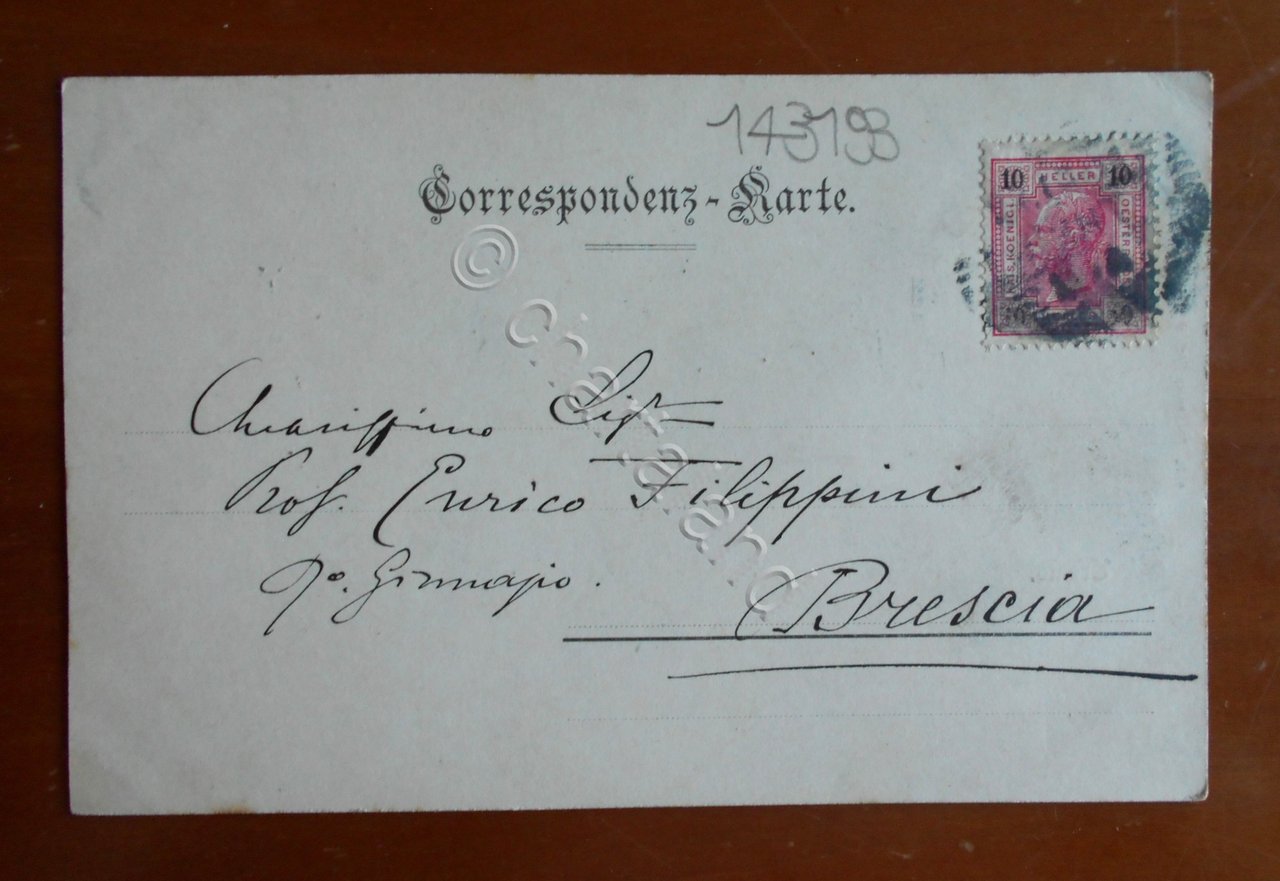 143193
Correspondenz-Karte.
10 HELLER 10
KAIS. KOENIGL.
OESTERR
Chiarissimo Sigr
Prof. Enrico Filippini
Ro. Ginnasio.
Brescia
©